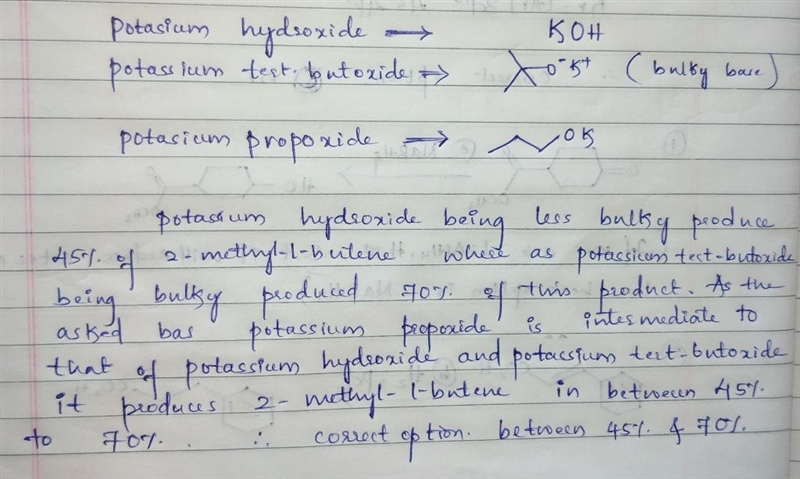 potasium hydroxide → KOH
potassium tert. butoxide → O⁻K⁺ (bulky base)
potasium propoxide → OK
potassium hydroxide being less bulky produce
45% of 2-methyl-1-butene where as potassium tert-butoxide
being bulky produced 70% of this product. As the
asked bas potassium propoxide is intermediate to
that of potassium hydroxide and potassium tert-butoxide
it produces 2-methyl-1-butene in between 45%
to 70%. ∴ correct option. between 45% & 70%.